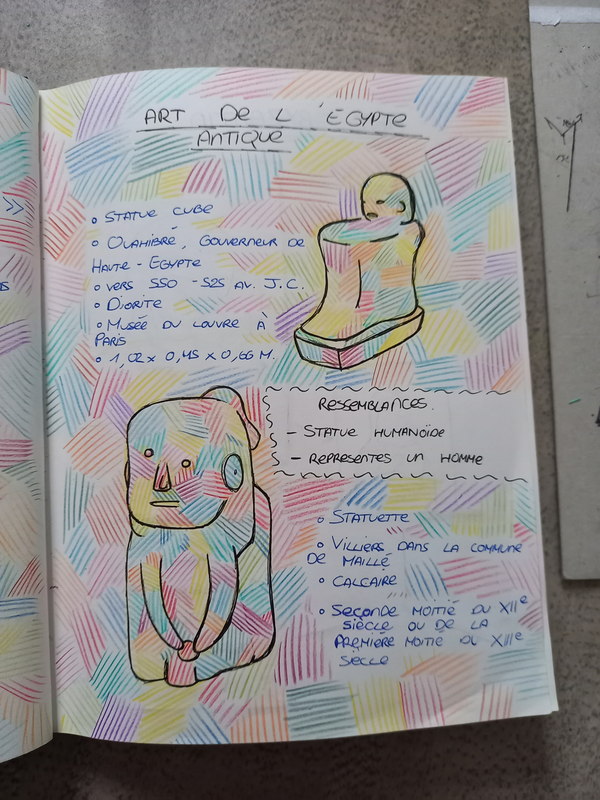 ART DE L'ÉGYPTE
ANTIQUE
◦ STATUE CUBE
◦ OUAHIBRÉ, GOUVERNEUR DE
HAUTE-EGYPTE
◦ VERS 550-525 AV. J.C.
◦ DIORITE
◦ MUSÉE DU LOUVRE À
PARIS
◦ 1,02 x 0,45 x 0,66 M.
RESSEMBLANCES.
- STATUE HUMANOÏDE
- REPRESENTES UN HOMME
◦ STATUETTE
◦ VILLIERS DANS LA COMMUNE
DE MAILLÉ
◦ CALCAIRE
◦ SECONDE MOITIÉ DU XIIe
SIÈCLE OU DE LA
PREMIÈRE MOITIÉ DU XIIIe
SIÈCLE